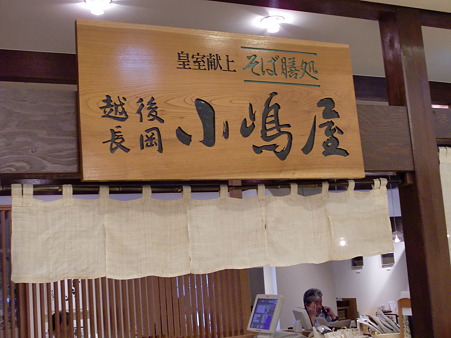 皇室献上 そば膳処
越後
長岡 小嶋屋